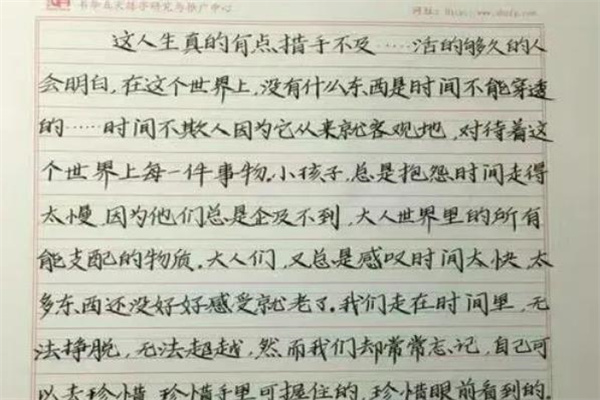 书和在天练字研究与推广中心
这人生真的有点措手不及……活的够久的人
会明白，在这个世界上，没有什么东西是时间不能穿透
的……时间不欺人因为它从来就客观地，对待着这
个世界上每一件事物。小孩子，总是抱怨时间走得
太慢，因为他们总是企及不到，大人世界里的所有
能支配的物质。大人们，又总是感叹时间太快，太
多东西还没好好感受就老了。我们走在时间里，无
法挣脱，无法超越，然而我们却常常忘记，自己可
以去珍惜，珍惜手里可握住的，珍惜眼前看到的。